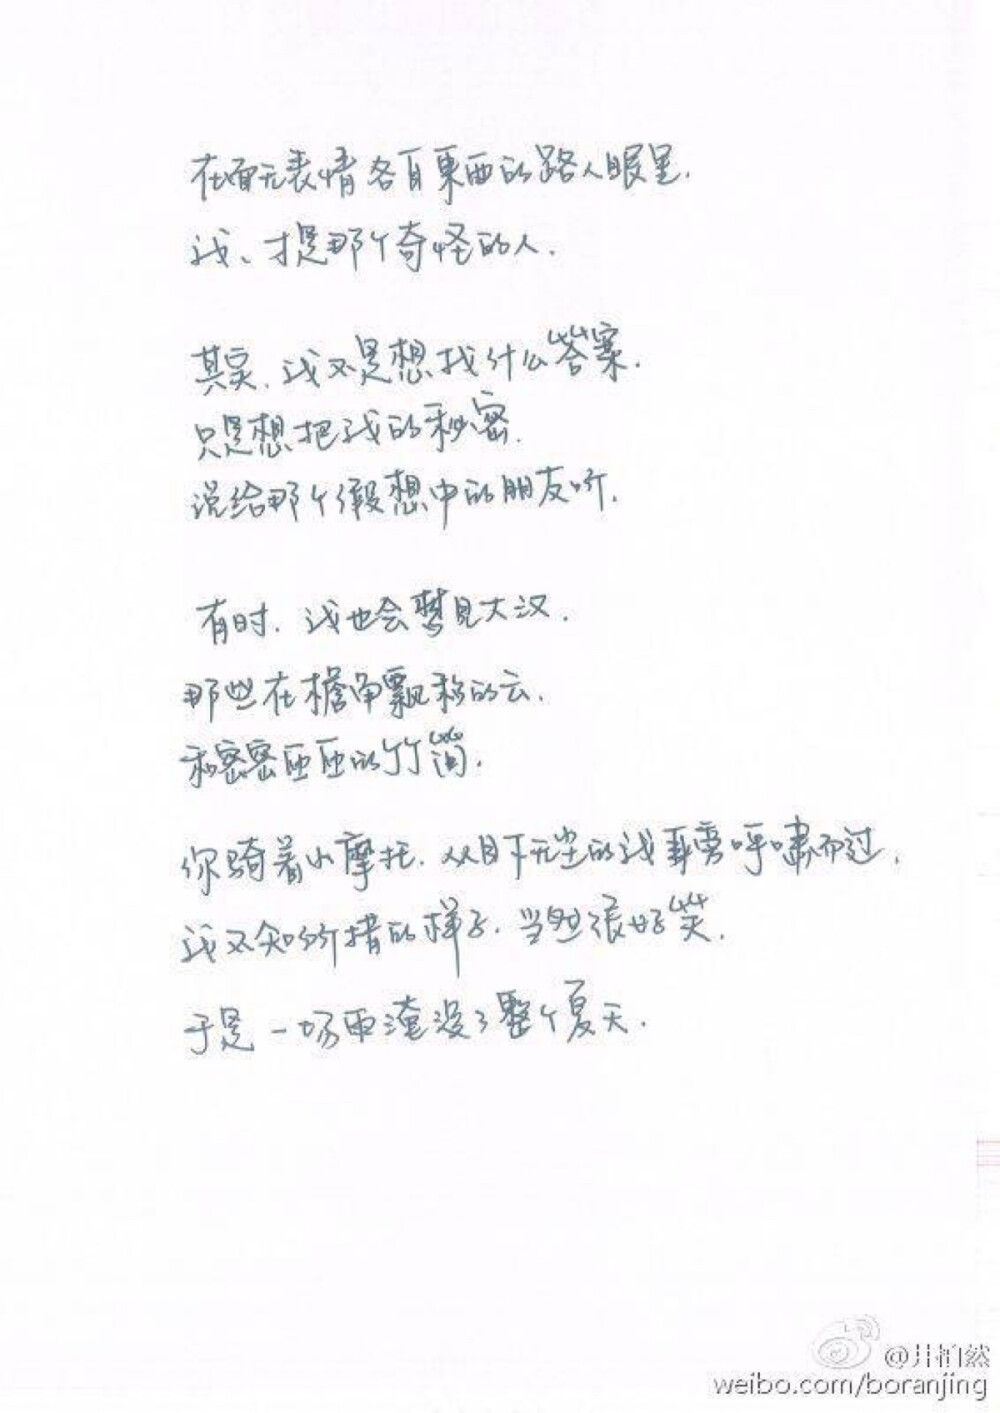 在面无表情各自東西的路人眼里,
我、才是那个奇怪的人.
其实、我不是想找什么答案.
只是想把我的秘密.
说给那个假想中的朋友听.
有时.我也会梦见大汉.
那些在檐角飘移的云.
和密密匝匝的竹简.
你骑着小摩托.从目下无尘的我耳旁呼啸而过,
我不知所措的样子.当然很好笑.
于是一场雨淹没了整个夏天.
@井柏然
weibo.com/boranjing